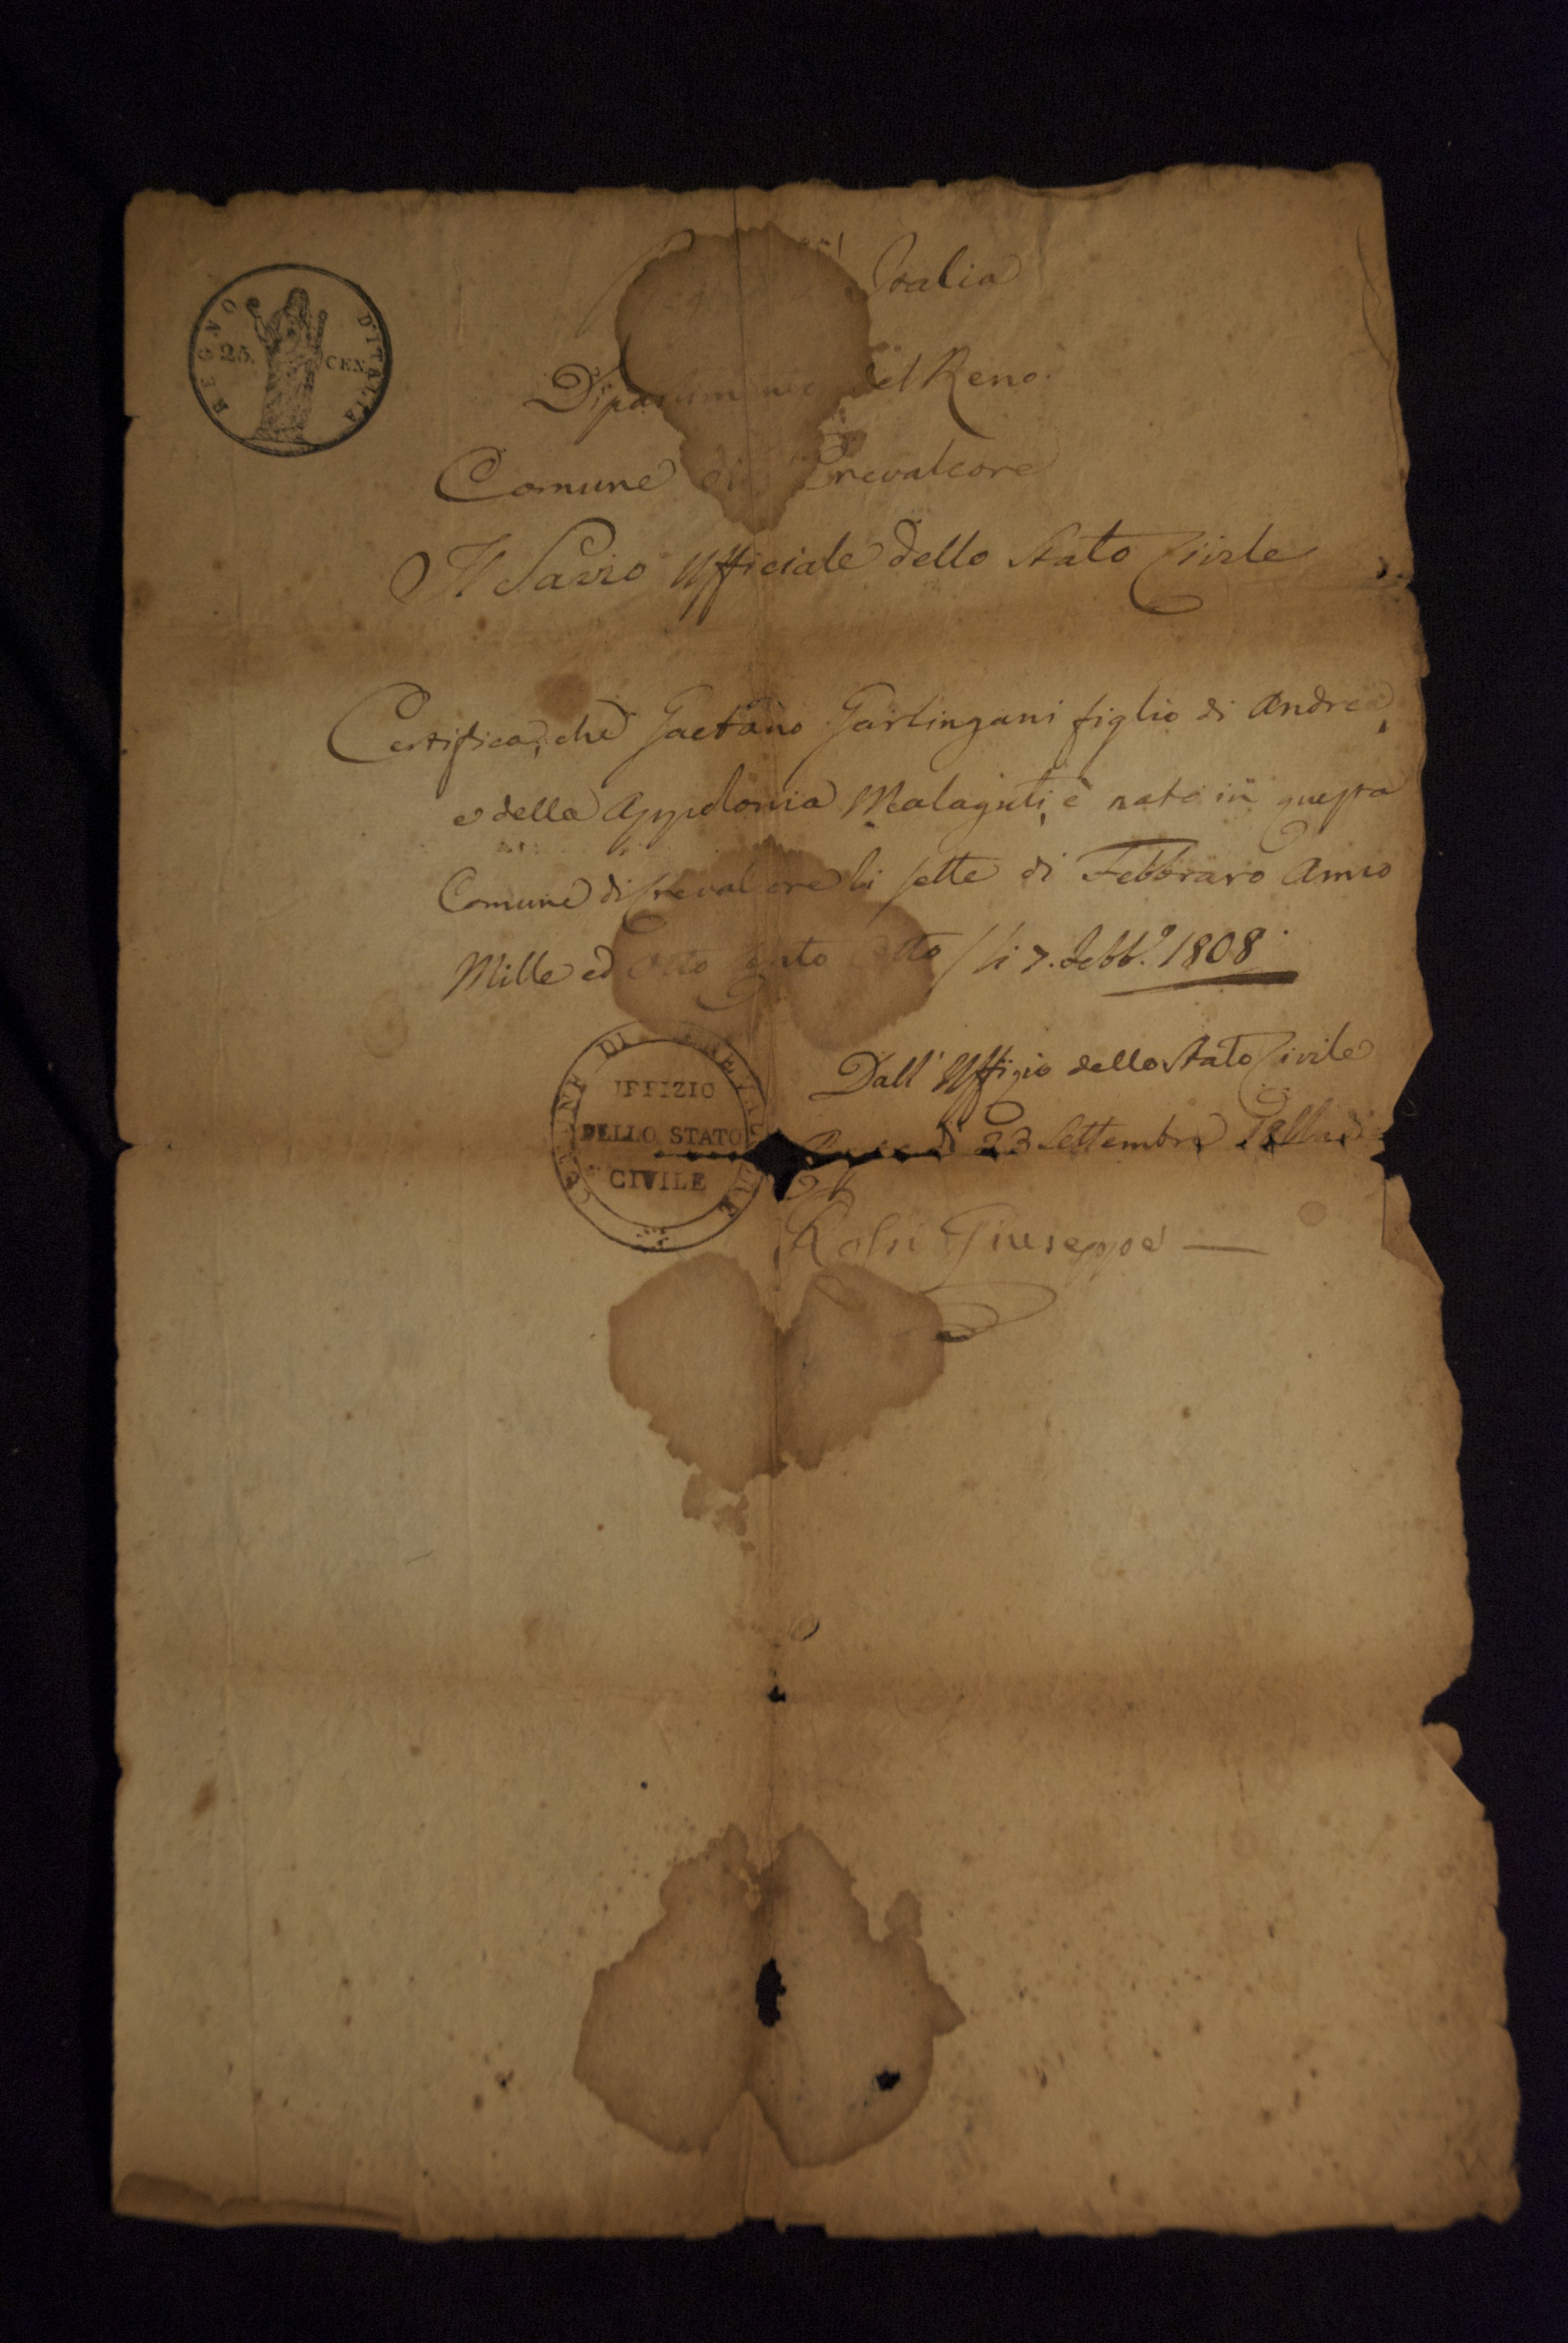 REGNO D'ITALIA
25. CEN.
Italia
Dipartimento del Reno
Comune di Crevalcore
Il Savio Ufficiale dello Stato Civile
Certifica, che Gaetano Garlingani figlio di Andrea,
e della Appolonia Malaguti, è nato in questa
Comune di Crevalcore li sette di Febbraro Anno
Mille ed Otto cento Otto / li 7. Febb.º 1808
COMUNE DI CREVALCORE
UFFIZIO
DELLO STATO
CIVILE
Dall' Uffizio dello Stato Civile
23 Settembre
Rossi Giuseppe